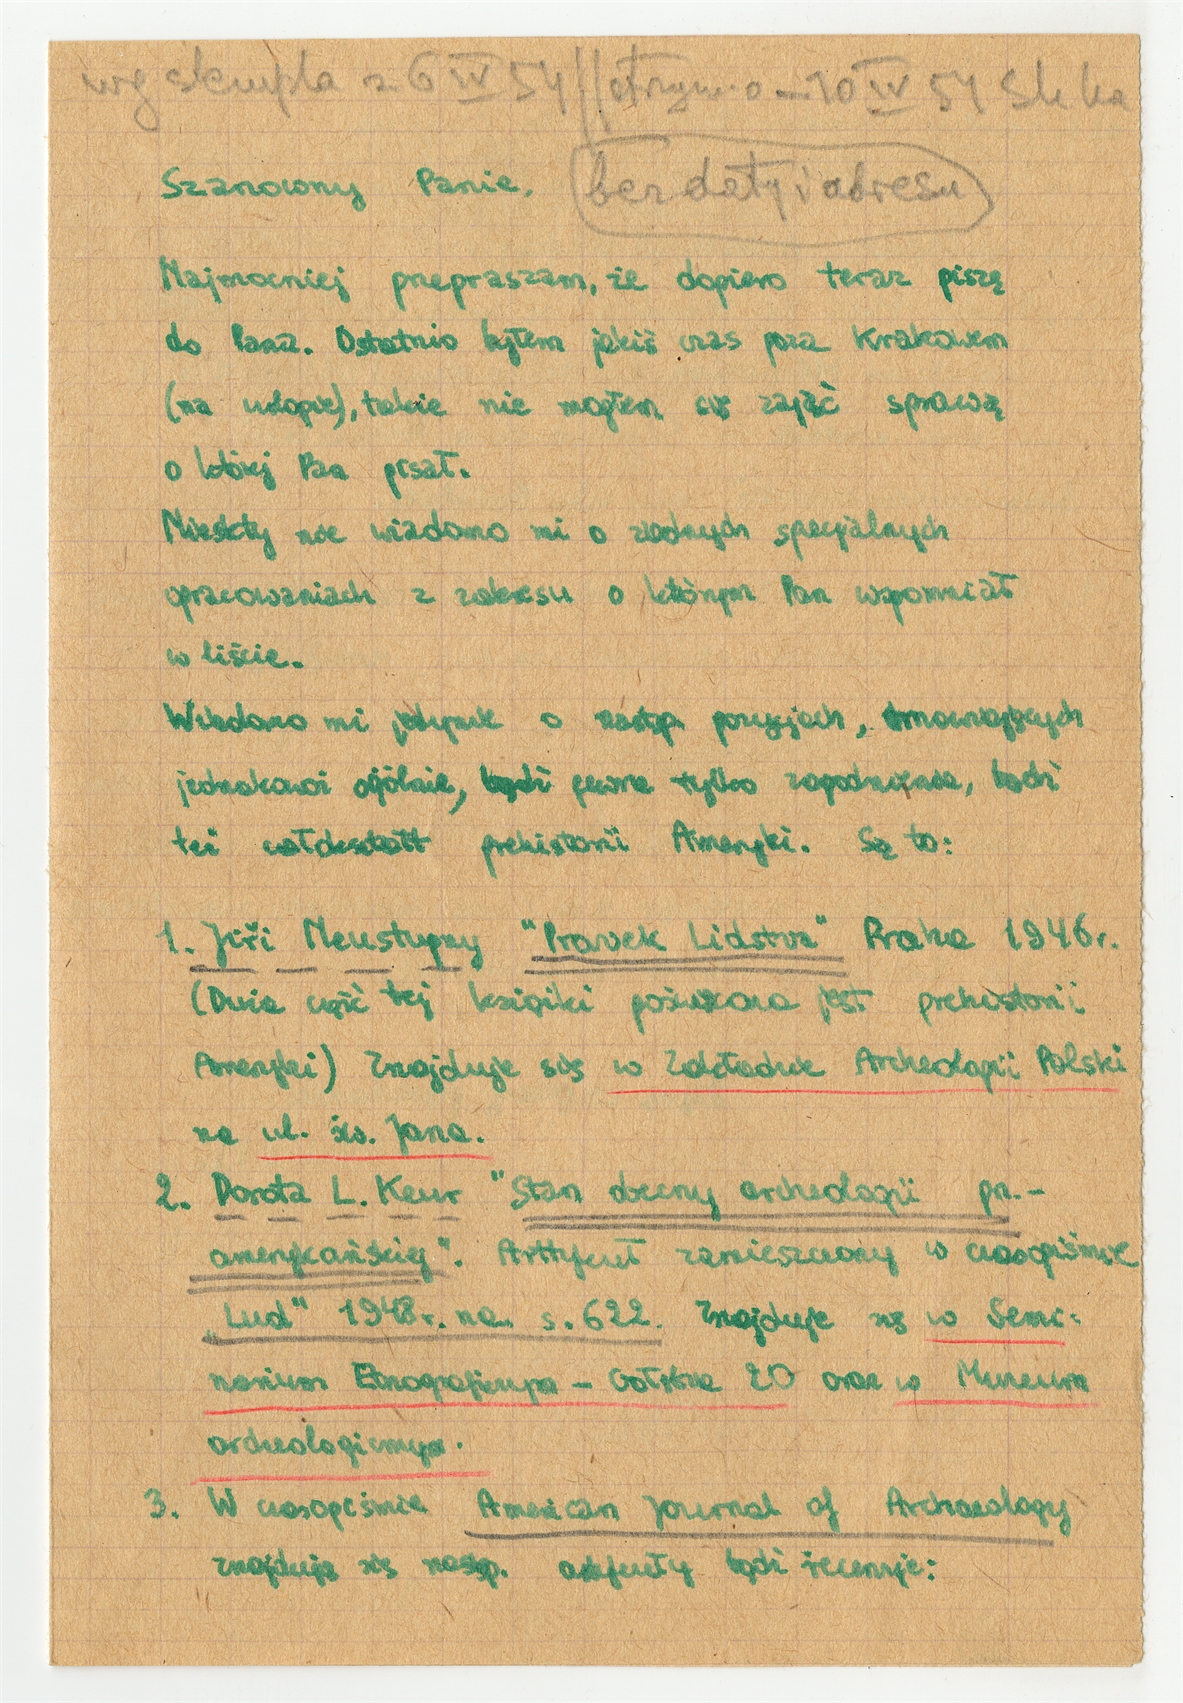 wg stempla z 6 IV 54 // otrzym-o — 10 IV 54
bez daty i adresu
Szanowny Panie,
Najmocniej przepraszam, że dopiero teraz piszę
do Pana. Ostatnio byłem jakiś czas poza Krakowem
(na urlopie), także nie mogłem się zająć sprawą
o której Pan pisał.
Niestety nie wiadomo mi o żadnych specjalnych
opracowaniach z zakresu o którym Pan wspomniał
w liście.
Wiadomo mi jedynie o następ. pozycjach,
jednakowoż ogólnie, bądź pewne tylko zagadnienia, bądź
też całokształt prehistorii Ameryki. Są to:
1. Jiří Neustupny "Pravek Lidstva" Praha 1946 r.
(Duża część tej książki poświęcona jest prehistorii
Ameryki) Znajduje się w Zakładzie Archeologii Polski
na ul. św. Jana.
2. Dorota L. Keur "Stan obecny archeologii pn.-
amerykańskiej". Artykuł zamieszczony w czasopiśmie
„Lud" 1948 r. na s. 622. Znajduje się w Semi-
narium Etnograficznym – Gołębia 20 oraz w Muzeum
archeologicznym.
3. W czasopiśmie American Journal of Archaeology
znajdują się następ. artykuły bądź recenzje: